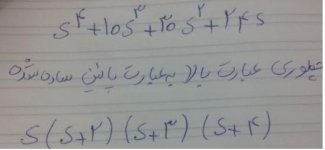 s⁴+10s³+30s²+24s
چطوری عبارت بالا به عبارت پائین ساده شده
s(s+2)(s+3)(s+4)